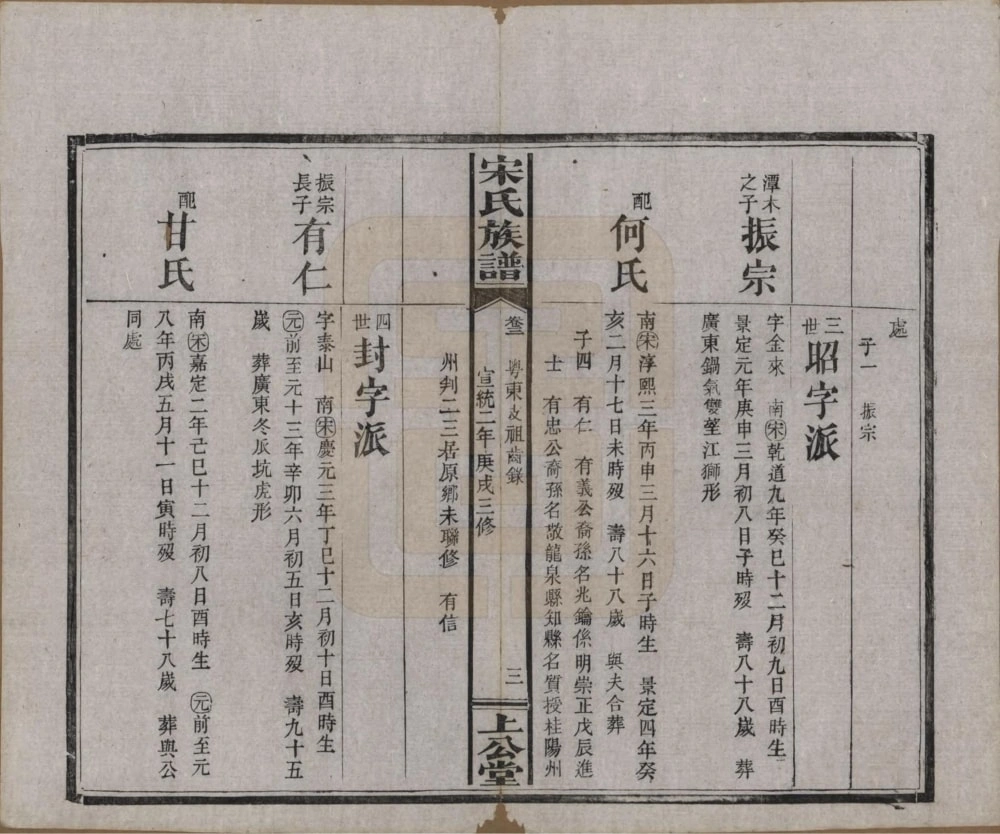 處
子一　振宗
三世 昭字派
潭木之子 振宗
字金來　南宋乾道九年癸巳十二月初九日酉時生
景定元年庚申三月初八日子時歿　壽八十八歲　葬
廣東鍋氣雙筀江獅形
配 何氏
南宋淳熙三年丙申三月十六日子時生　景定四年癸
亥二月十七日未時歿　壽八十八歲　與夫合葬
子四　有仁　有義公裔孫名兆鑰係明崇正戊辰進
士　有忠公裔孫名敬龍泉縣知縣名質授桂陽州
宋氏族譜
卷二　粵東支祖齒錄
宣統二年庚戌三修
三
上公堂
州判二三居原鄉未聯修　有信
四世 封字派
振宗長子 有仁
字泰山　南宋慶元三年丁巳十二月初十日酉時生
元前至元十三年辛卯六月初五日亥時歿　壽九十五
歲　葬廣東冬瓜坑虎形
配 甘氏
南宋嘉定二年己巳十二月初八日酉時生　元前至元
八年丙戌五月十一日寅時歿　壽七十八歲　葬與公
同處